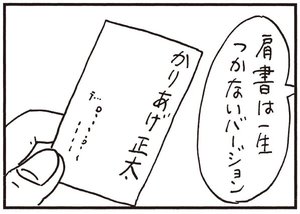 肩書は一生
つかないバージョン
かりあげ正太